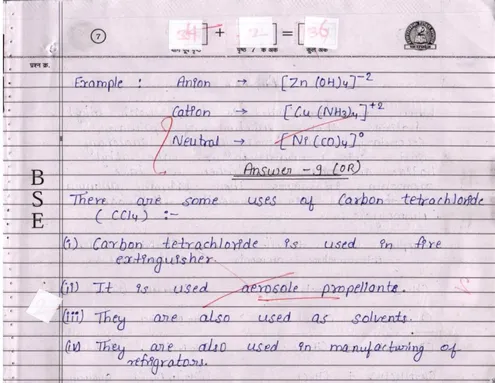 7
34 + 2 = 36
पृष्ठ 7 के अंक
कुल अंक
प्रश्न क्र.
Example : Anion → [Zn(OH)4]-2
Cation → [Cu(NH3)4]+2
Neutral → [Ni(CO)4]0
Answer - 9 (OR)
There are some uses of Carbon tetrachloride
(CCl4) :-
(i) Carbon tetrachloride is used in fire
extinguisher.
(ii) It is used aerosole propellants.
(iii) They are also used as solvents.
(iv) They are also used in manufacturing of
refrigrators.
B
S
E